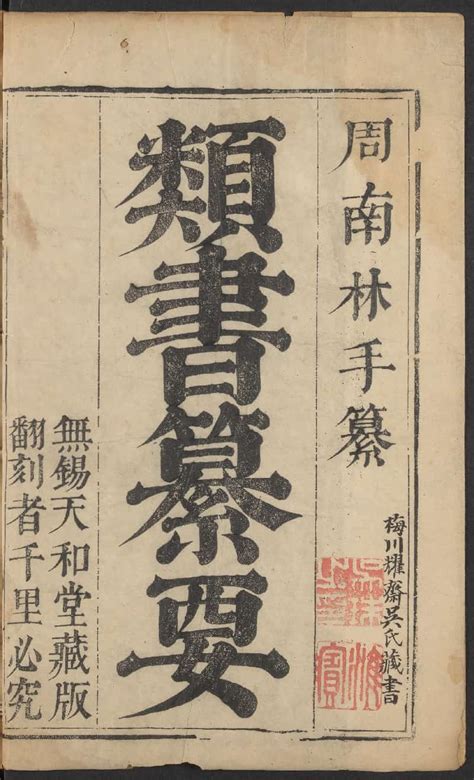 周南林手纂
梅川耀齋吳氏藏書
類書纂要
無錫天和堂藏版
翻刻者千里必究